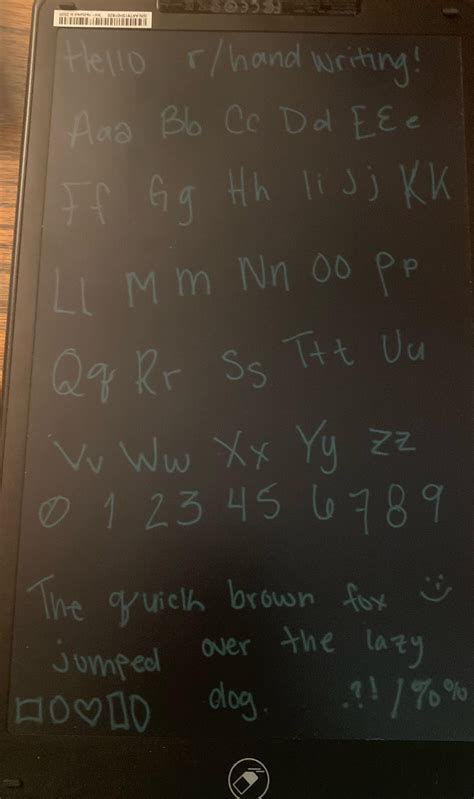 Hello r/handwriting!
Aaa Bb Cc Dd EEe
Ff Gg Hh Ii Jj KK
Ll Mm Nn Oo Pp
Qq Rr Ss Ttt Uu
Vv Ww Xx Yy Zz
0 1 2 3 4 5 6 7 8 9
The quick brown fox :)
jumped over the lazy
dog. .?! / % %